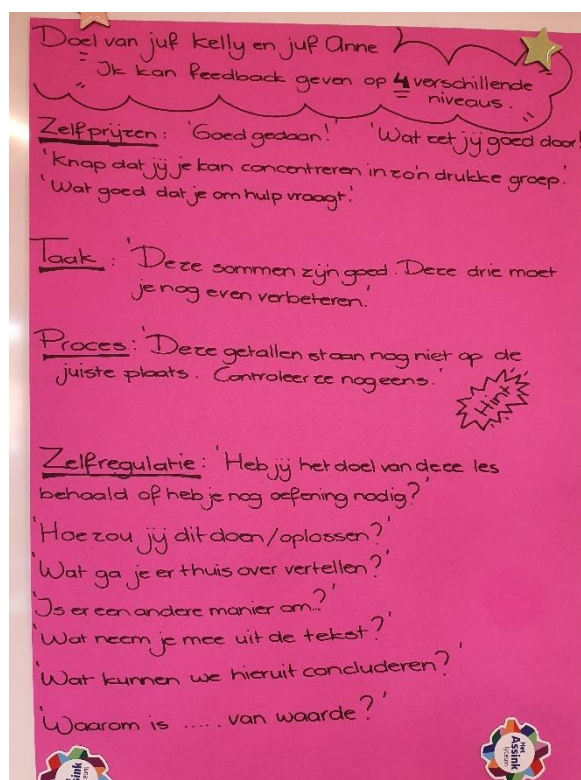 Doel van juf Kelly en juf Anne
Ik kan feedback geven op 4 verschillende
niveaus.
Zelfprijzen: 'Goed gedaan!' 'Wat zet jij goed door!
'Knap dat jij je kan concentreren in zo'n drukke groep.'
'Wat goed dat je om hulp vraagt.'
Taak: 'Deze sommen zijn goed. Deze drie moet
je nog even verbeteren.'
Proces: 'Deze getallen staan nog niet op de
juiste plaats. Controleer ze nog eens.'
Hint
Zelfregulatie: 'Heb jij het doel van deze les
behaald of heb je nog oefening nodig?'
'Hoe zou jij dit doen/oplossen?'
'Wat ga je er thuis over vertellen?'
'Is er een andere manier om..?'
'Wat neem je mee uit de tekst?'
'Wat kunnen we hieruit concluderen?'
'Waarom is ..... van waarde?'
Het
Assink
lyceum